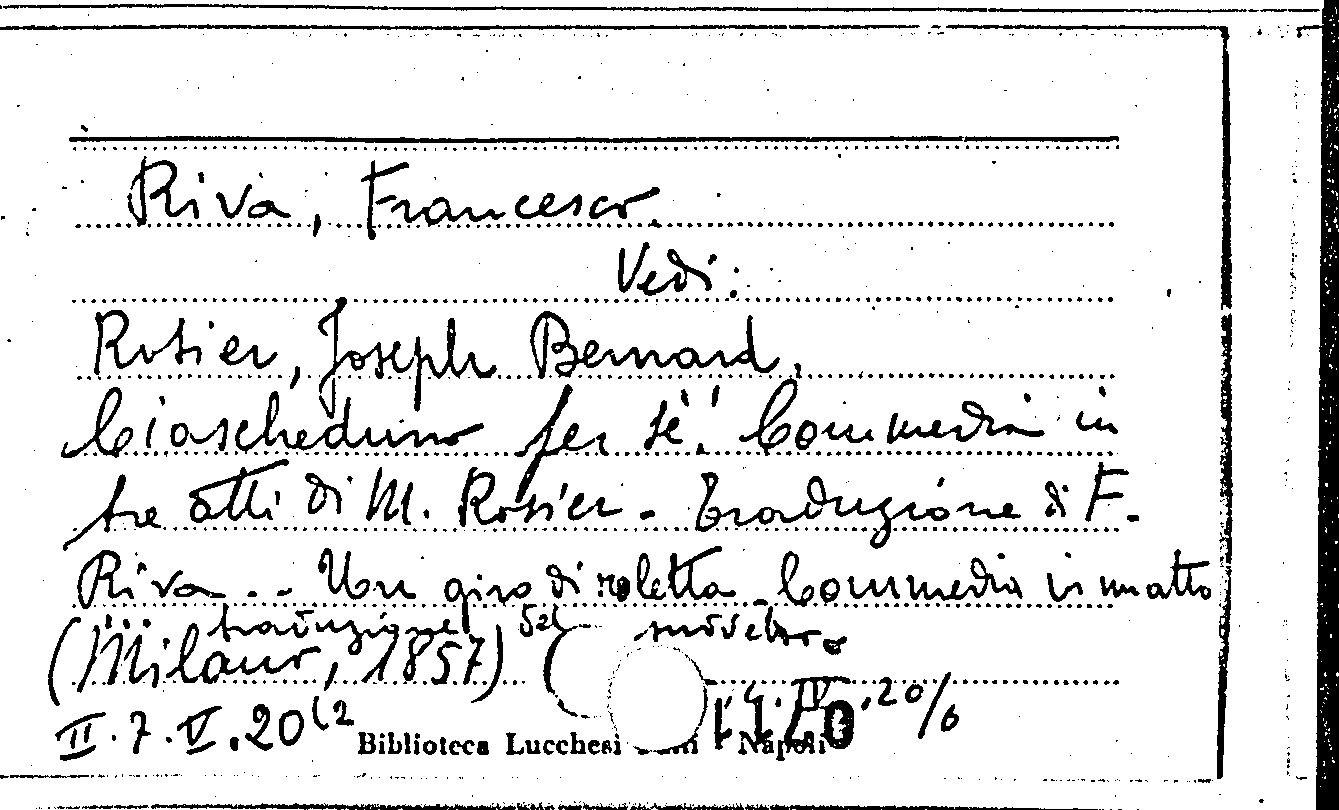 Riva, Francesco.
Vedi:
Rosier, Joseph Bernard.
Ciascheduno per sè! Commedia in
tre atti di M. Rosier. - Traduzione di F.
Riva. - Un giro di roletta. Commedia in un atto
traduzione del
(Milano, 1857) (
II. 7. V. 20(2 IV. 20/6
Biblioteca Lucchesi Napoli